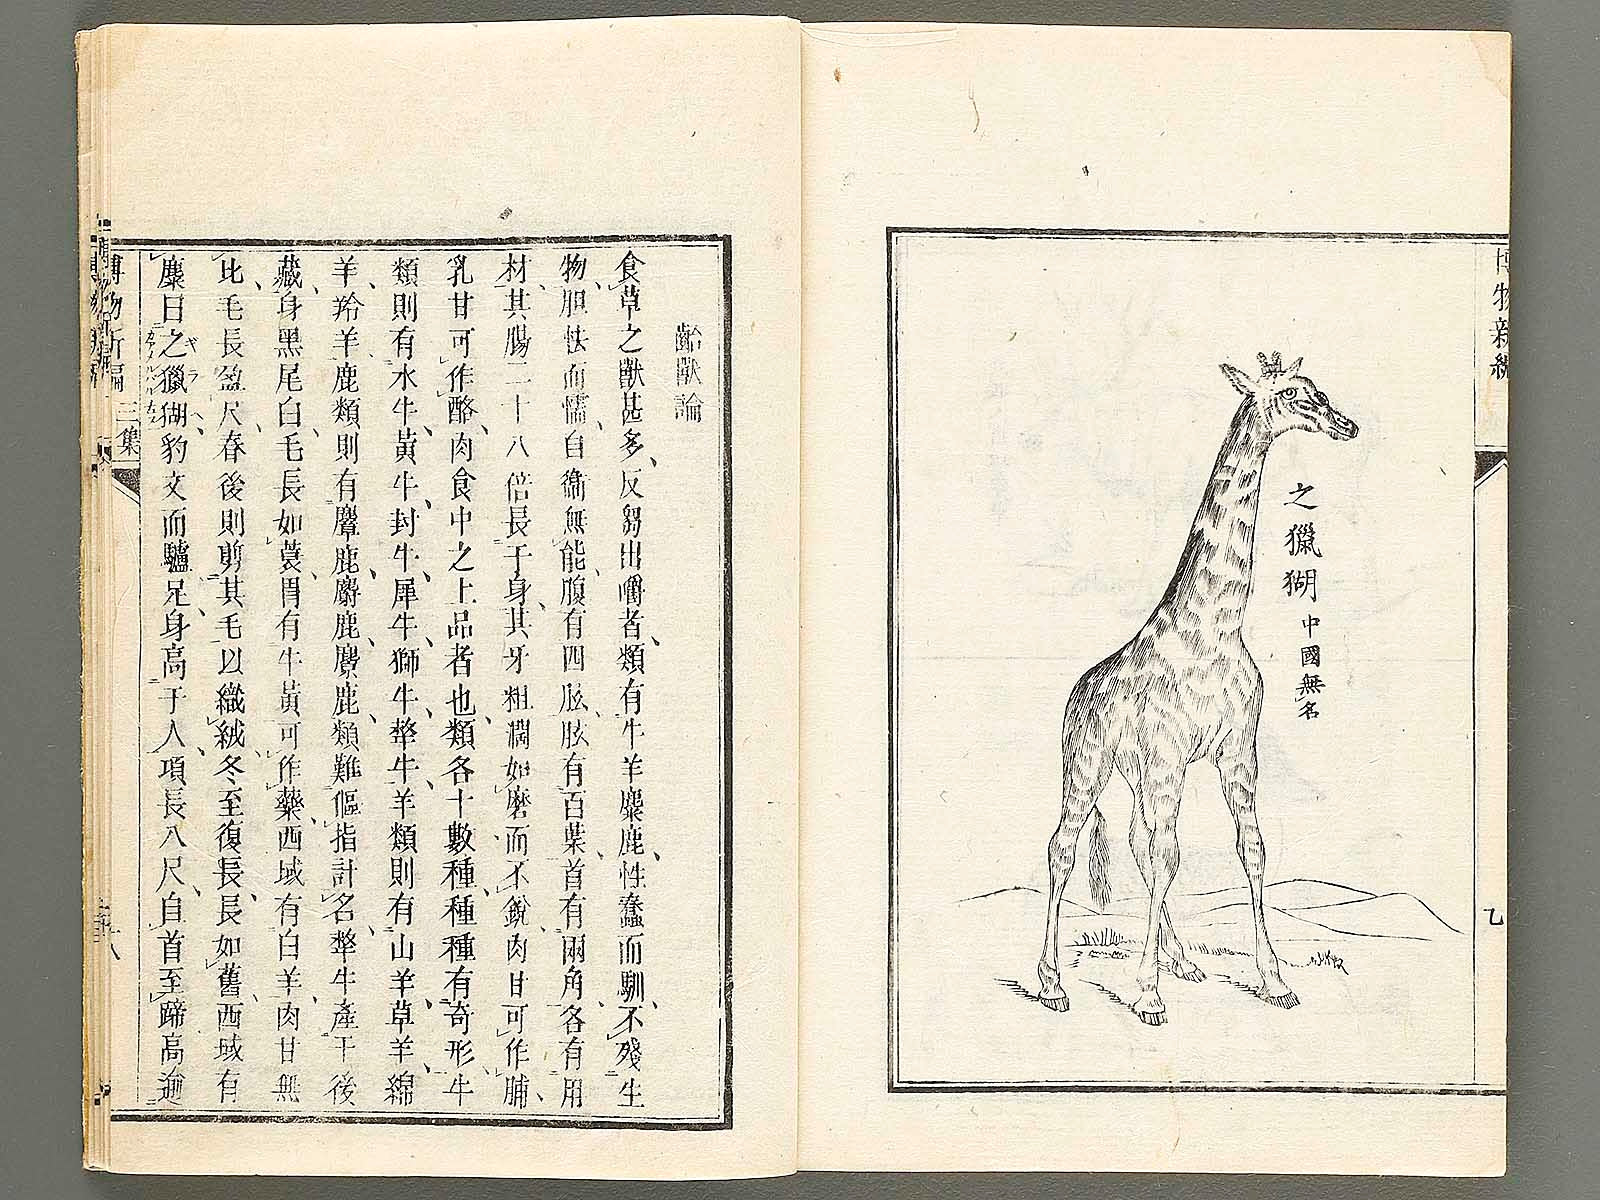 博物新編
之獵猢 中國無名
乙
齝獸論
食草之獸甚多反芻出嚼者類有牛羊麋鹿性蠢而馴不殘生
物胆怯而懦自衞無能腹有四胘胘有百葉首有兩角各有用
材其腸二十八倍長于身其牙粗濶如磨而不銳肉甘可作脯
乳甘可作酪肉食中之上品者也類各十數種種種有奇形牛
類則有水牛黃牛封牛犀牛獅牛犛牛羊類則有山羊草羊綿
羊羚羊鹿類則有麞鹿麝鹿麖鹿類難傴指計名犛牛產于後
藏身黑尾白毛長如蓑胃有牛黃可作藥西域有白羊肉甘無
比毛長盈尺春後則剪其毛以織絨冬至復長長如舊西域有
麋曰之獵猢豹文而驢足身高于人項長八尺自首至蹄高逾
ギラ
博物新編 三集
八